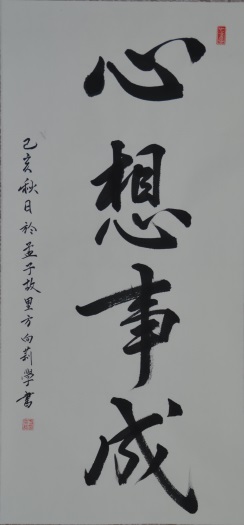 心想事成
己亥秋日於孟子故里方向莉學書